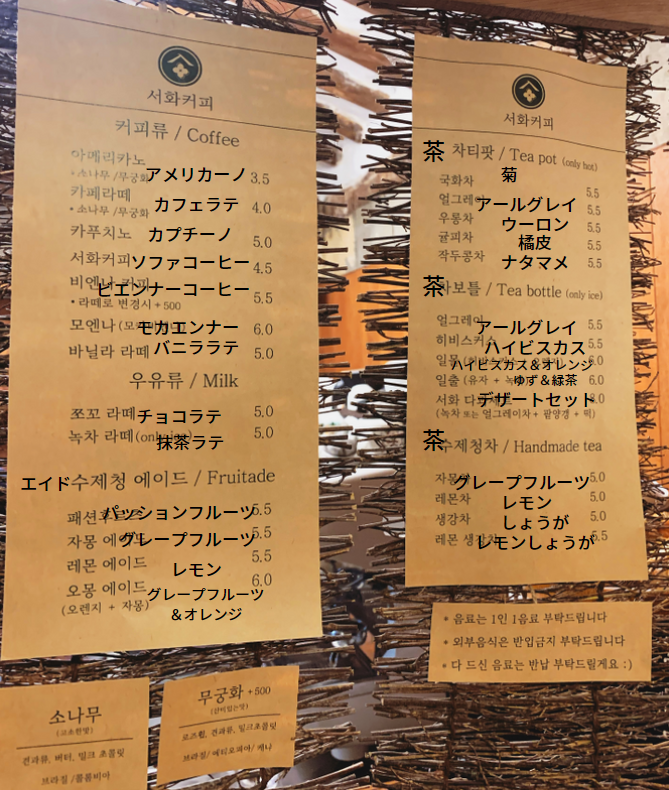 서화커피
커피류 / Coffee
아메리카노
• 소나무 /무궁화 アメリカーノ 3.5
카페라떼
• 소나무 /무궁화 カフェラテ 4.0
카푸치노 カプチーノ 5.0
서화커피 ソファコーヒー 4.5
비엔나 커피 ビエンナーコーヒー 5.5
• 라떼로 변경시 + 500
모엔나 モカエンナー 6.0
바닐라 라떼 バニララテ 5.0
우유류 / Milk
쪼꼬 라떼 チョコラテ 5.0
녹차 라떼 (only 抹茶ラテ 5.0
エイド 수제청 에이드 / Fruitade
패션 パッションフルーツ 5.5
자몽 에 グレープフルーツ 5.5
레몬 에이드 レモン 5.5
오몽 에이드 6.0
(오렌지 + 자몽) グレープフルーツ
&オレンジ
소나무
(고소한맛)
견과류, 버터, 밀크 초콜릿
브라질 /콜롬비아
무궁화 +500
(산미있는맛)
로즈힙, 견과류, 밀크초콜릿
브라질/ 에티오피아/ 케냐
서화커피
茶 차티팟 / Tea pot (only hot)
국화차 菊 5.5
얼그레이 アールグレイ 5.5
우롱차 ウーロン 5.5
귤피차 橘皮 5.5
작두콩차 ナタマメ 5.5
茶 보틀 / Tea bottle (only ice)
얼그레이 アールグレイ 5.5
히비스커스 ハイビスカス 5.5
일몰 ハイビスカス&オレンジ 6.0
일출 (유자 + ゆず&緑茶 6.0
서화 다 デザートセット 8.0
(녹차 또는 얼그레이차 + 팥양갱 + 떡)
茶 수제청차 / Handmade tea
자몽차 グレープフルーツ 5.0
레몬차 レモン 5.0
생강차 しょうが 5.0
레몬 생강차 レモンしょうが 5.5
* 음료는 1인 1음료 부탁드립니다
* 외부음식은 반입금지 부탁드립니다
* 다 드신 음료는 반납 부탁드릴게요 :)